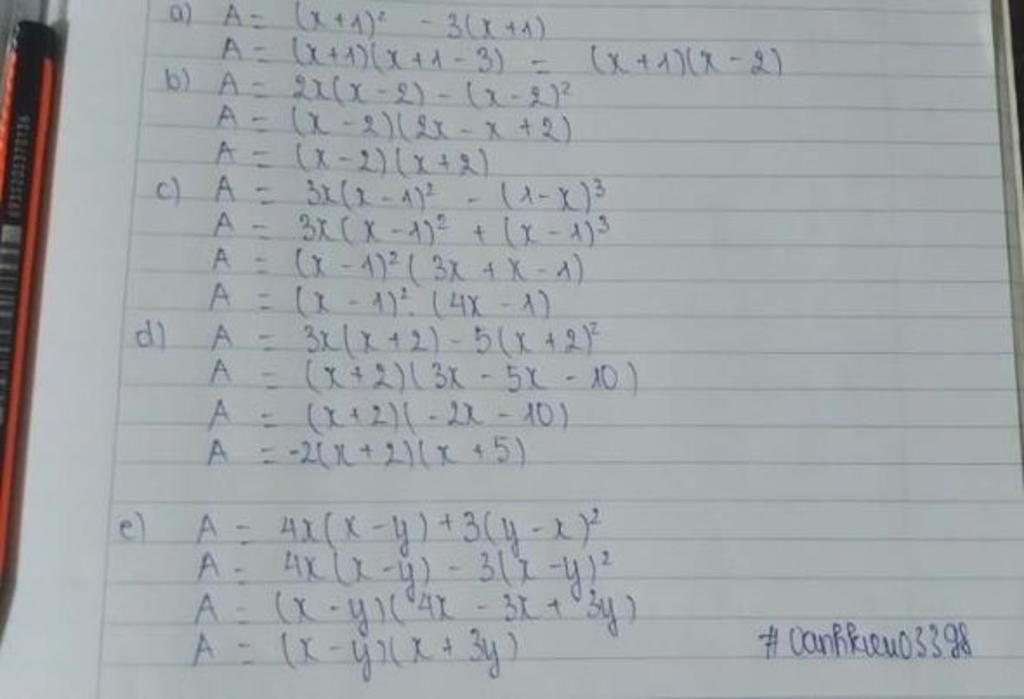 a) A = (x+1)² - 3(x+1)
A = (x+1)(x+1-3) = (x+1)(x-2)
b) A = 2x(x-2) - (x-2)²
A = (x-2)(2x-x+2)
A = (x-2)(x+2)
c) A = 3x(x-1)² - (1-x)³
A = 3x(x-1)² + (x-1)³
A = (x-1)²(3x+x-1)
A = (x-1)².(4x-1)
d) A = 3x(x+2) - 5(x+2)²
A = (x+2)(3x-5x-10)
A = (x+2)(-2x-10)
A = -2(x+2)(x+5)
e) A = 4x(x-y) + 3(y-x)²
A = 4x(x-y) - 3(x-y)²
A = (x-y)(4x-3x+3y)
A = (x-y)(x+3y)